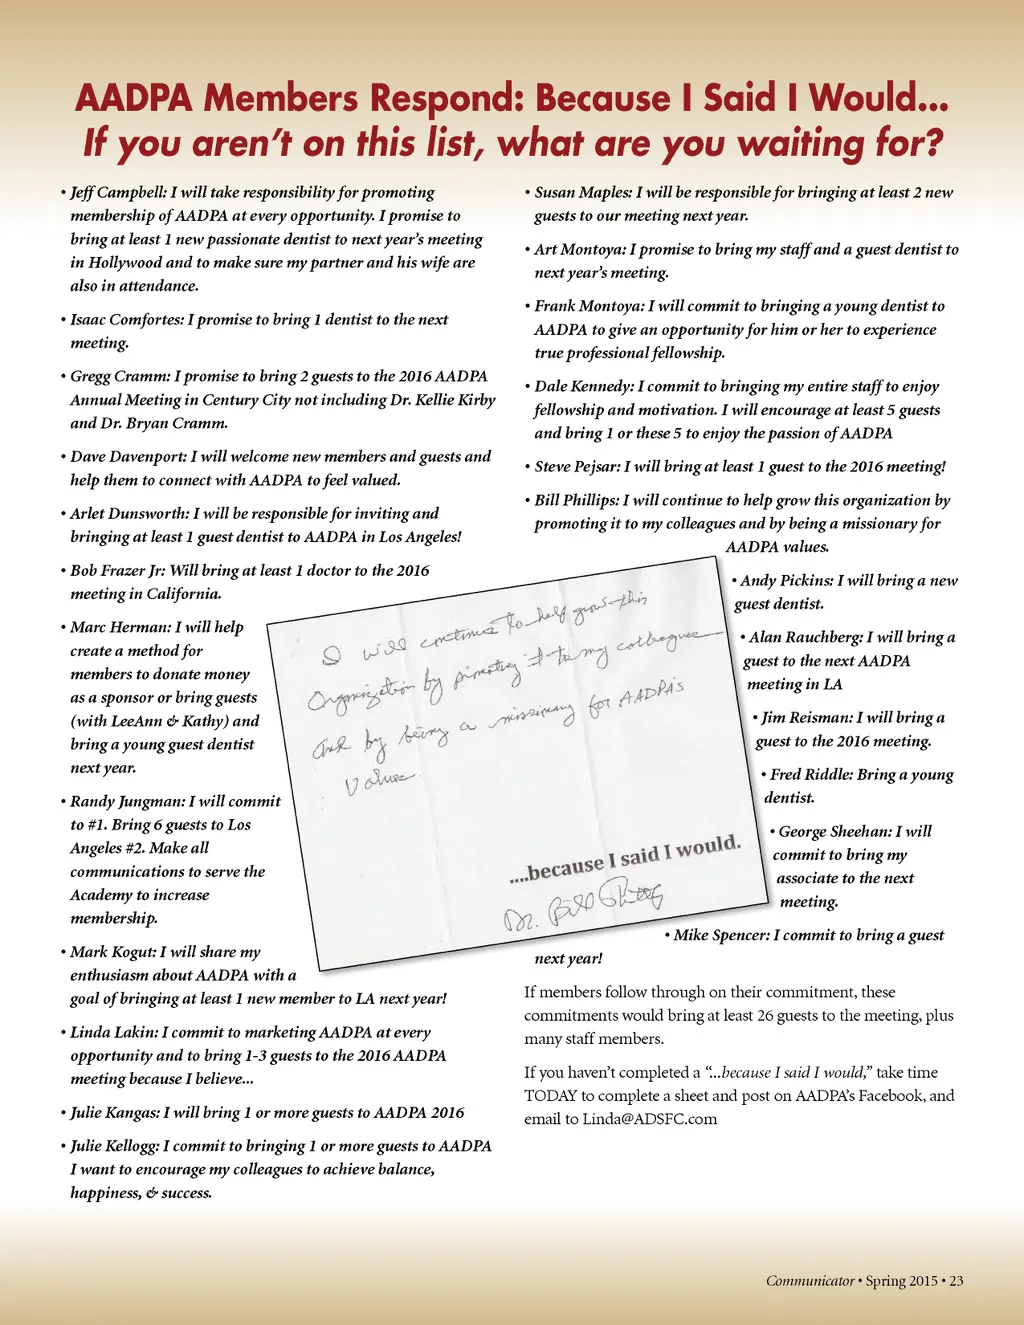 AADPA Members Respond: Because I Said I Would...
If you aren't on this list, what are you waiting for?
• Jeff Campbell: I will take responsibility for promoting
membership of AADPA at every opportunity. I promise to
bring at least 1 new passionate dentist to next year's meeting
in Hollywood and to make sure my partner and his wife are
also in attendance.
• Isaac Comfortes: I promise to bring 1 dentist to the next
meeting.
• Gregg Cramm: I promise to bring 2 guests to the 2016 AADPA
Annual Meeting in Century City not including Dr. Kellie Kirby
and Dr. Bryan Cramm.
• Dave Davenport: I will welcome new members and guests and
help them to connect with AADPA to feel valued.
• Arlet Dunsworth: I will be responsible for inviting and
bringing at least 1 guest dentist to AADPA in Los Angeles!
• Bob Frazer Jr: Will bring at least 1 doctor to the 2016
meeting in California.
• Marc Herman: I will help
create a method for
members to donate money
as a sponsor or bring guests
(with LeeAnn & Kathy) and
bring a young guest dentist
next year.
• Randy Jungman: I will commit
to #1. Bring 6 guests to Los
Angeles #2. Make all
communications to serve the
Academy to increase
membership.
• Mark Kogut: I will share my
enthusiasm about AADPA with a
goal of bringing at least 1 new member to LA next year!
• Linda Lakin: I commit to marketing AADPA at every
opportunity and to bring 1-3 guests to the 2016 AADPA
meeting because I believe...
• Julie Kangas: I will bring 1 or more guests to AADPA 2016
• Julie Kellogg: I commit to bringing 1 or more guests to AADPA
I want to encourage my colleagues to achieve balance,
happiness, & success.
• Susan Maples: I will be responsible for bringing at least 2 new
guests to our meeting next year.
• Art Montoya: I promise to bring my staff and a guest dentist to
next year's meeting.
• Frank Montoya: I will commit to bringing a young dentist to
AADPA to give an opportunity for him or her to experience
true professional fellowship.
• Dale Kennedy: I commit to bringing my entire staff to enjoy
fellowship and motivation. I will encourage at least 5 guests
and bring 1 or these 5 to enjoy the passion of AADPA
• Steve Pejsar: I will bring at least 1 guest to the 2016 meeting!
• Bill Phillips: I will continue to help grow this organization by
promoting it to my colleagues and by being a missionary for
AADPA values.
• Andy Pickins: I will bring a new
guest dentist.
• Alan Rauchberg: I will bring a
guest to the next AADPA
meeting in LA
• Jim Reisman: I will bring a
guest to the 2016 meeting.
• Fred Riddle: Bring a young
dentist.
• George Sheehan: I will
commit to bring my
associate to the next
meeting.
• Mike Spencer: I commit to bring a guest
next year!
I will continue to help grow this
Organization by promoting it to my colleagues
and by being a missionary for AADPA's
Values.
....because I said I would.
Dr. Bill Phillips
If members follow through on their commitment, these
commitments would bring at least 26 guests to the meeting, plus
many staff members.
If you haven't completed a "...because I said I would," take time
TODAY to complete a sheet and post on AADPA's Facebook, and
email to Linda@ADSFC.com
Communicator • Spring 2015 • 23